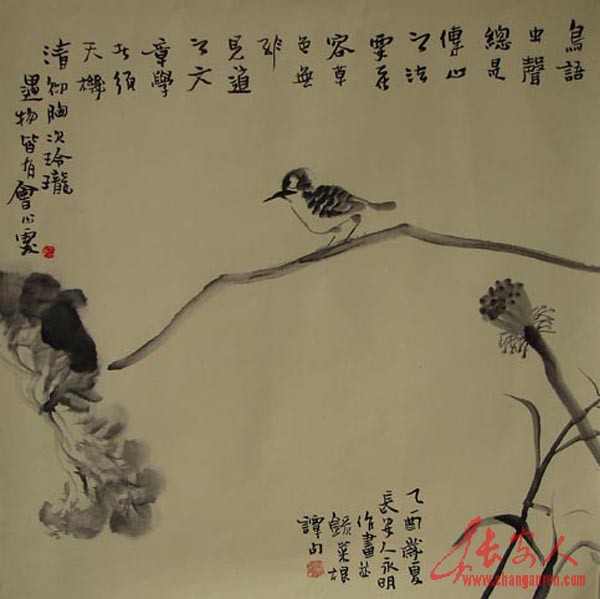 鳥語
虫聲
總是
傳心
之
容草
色無
非
見道
之文
章學
者須
天機
清 胸次玲瓏
遇物皆有會心處
乙酉歲夏
長安人永明
作畫並
錄菜根
譚句
长安人
www.changanren.com